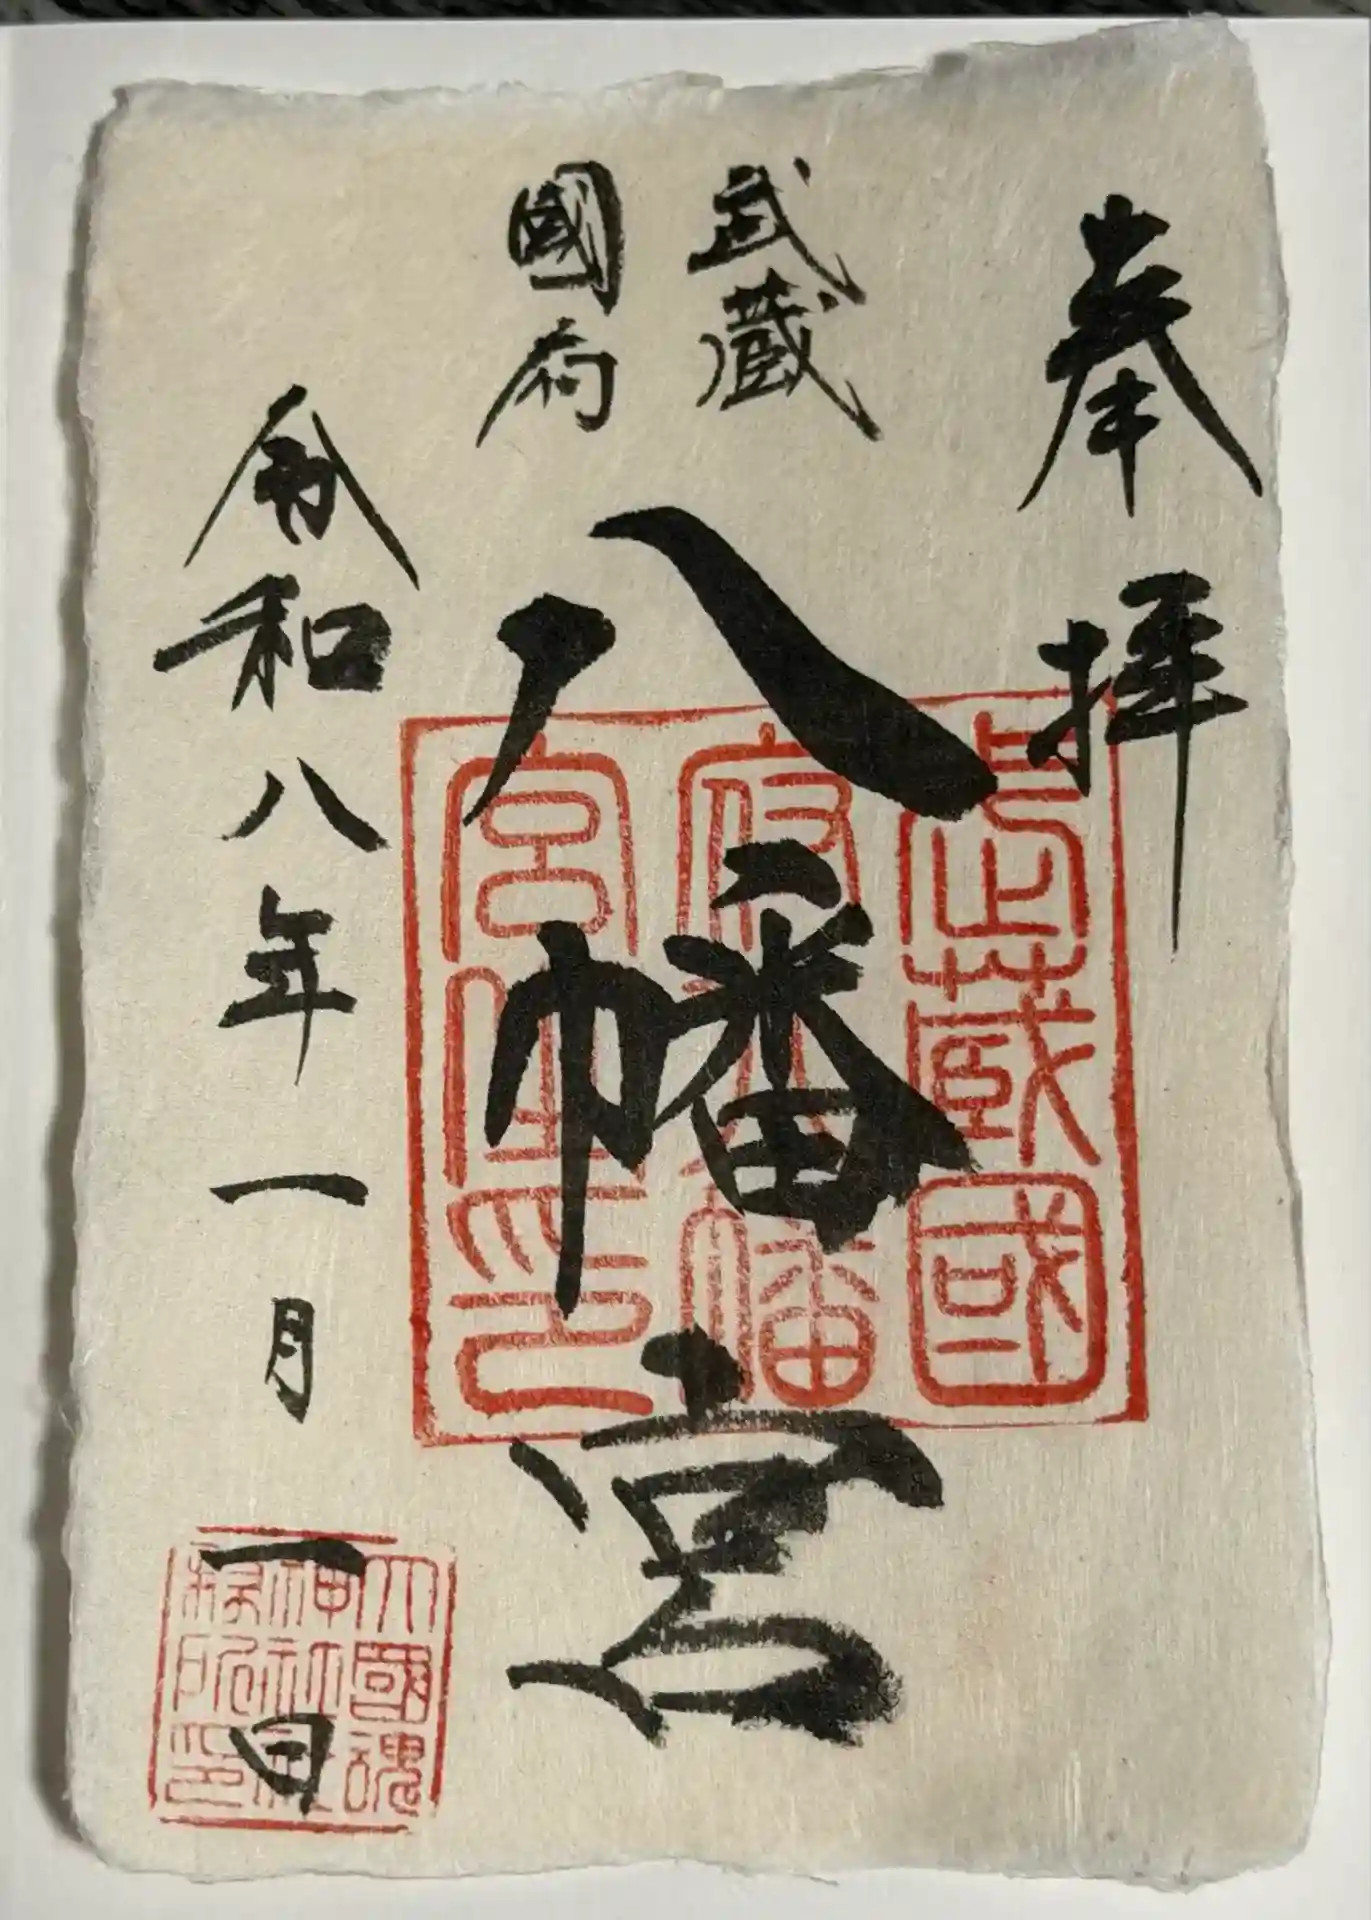 奉拝
武蔵
國府
八幡宮
令和八年一月一日
武蔵國
府八幡
宮印
大國魂
神社社
務所印